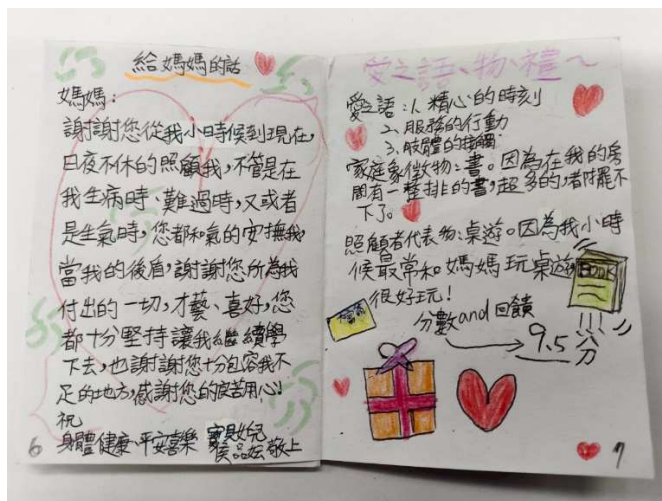 給媽媽的話
媽媽：
謝謝您從我小時候到現在，
日夜不休的照顧我，不管是在
我生病時、難過時，又或者
是生氣時，您都和氣的安撫我，
當我的後盾，謝謝您所為我
付出的一切，才藝、喜好，您
都十分堅持讓我繼續學
下去，也謝謝您十分包容我不
足的地方，感謝您的良苦用心！
祝
身體健康、平安喜樂 寶貝女兒
敬上
6
愛之語、物、禮～
愛之語：1、精心的時刻
2、服務的行動
3、肢體的接觸
家庭象徵物：書。因為在我的房
間有一整排的書，超多的，都擺不
下了。
照顧者代表物：桌遊。因為我小時
候最常和媽媽玩桌遊，
很好玩！
BOOK
分數and回饋
9.5分
7